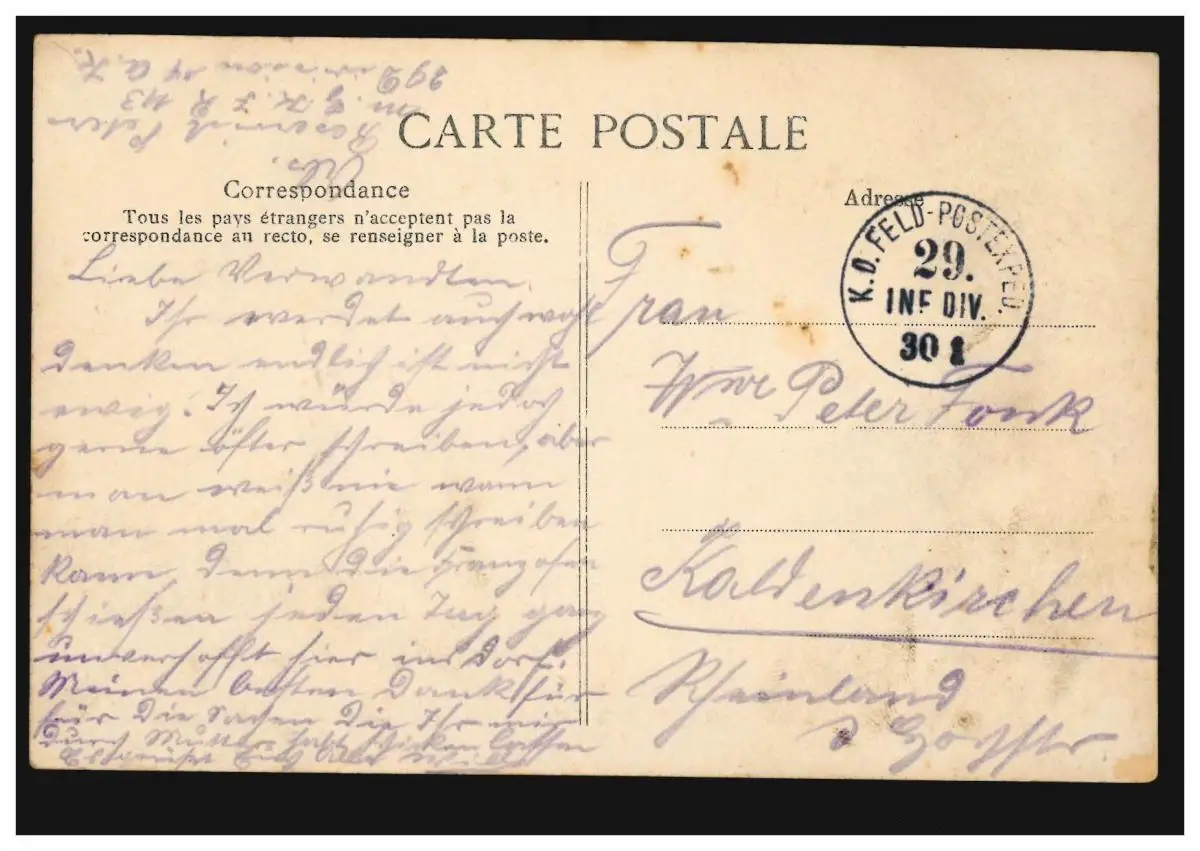 29 Division 14 A. K.
m. G. K. I R 113
Peter
CARTE POSTALE
Correspondance
Tous les pays étrangers n'acceptent pas la
correspondance au recto, se renseigner à la poste.
Adresse
K. D. FELD-POSTEXPED.
29.
INF DIV.
30 1
Liebe Verwandten.
Ihr werdet auch wohl
denken endlich ist nicht
ewig. Ich würde jedoch
gerne öfter schreiben, aber
man weiß nie wann
man mal ruhig schreiben
kann, denn die Franzosen
schießen jeden Tag ganz
unverhofft hier ins Dorf.
Meinen besten Dank für
für die Sachen die Ihr mir
durch Mutter habt schicken lassen
Euch
Frau
Wwe Peter Fonk
Kaldenkirchen
Rheinland